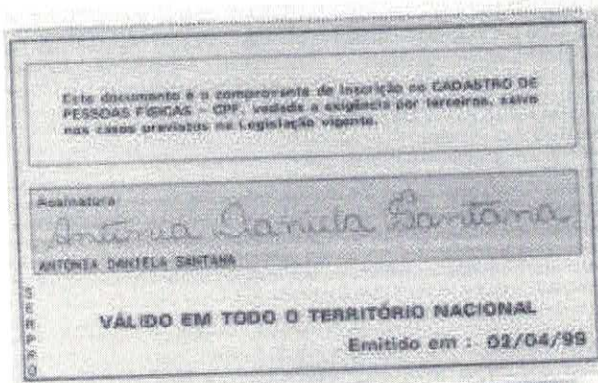 Este documento é o comprovante de inscrição no CADASTRO DE
PESSOAS FISICAS - CPF, vedada a exigência por terceiros, salvo
nos casos previstos na Legislação vigente.
Assinatura
Antonia Daniela Santana
ANTONIA DANIELA SANTANA
SERPRO
VÁLIDO EM TODO O TERRITÓRIO NACIONAL
Emitido em : 02/04/99